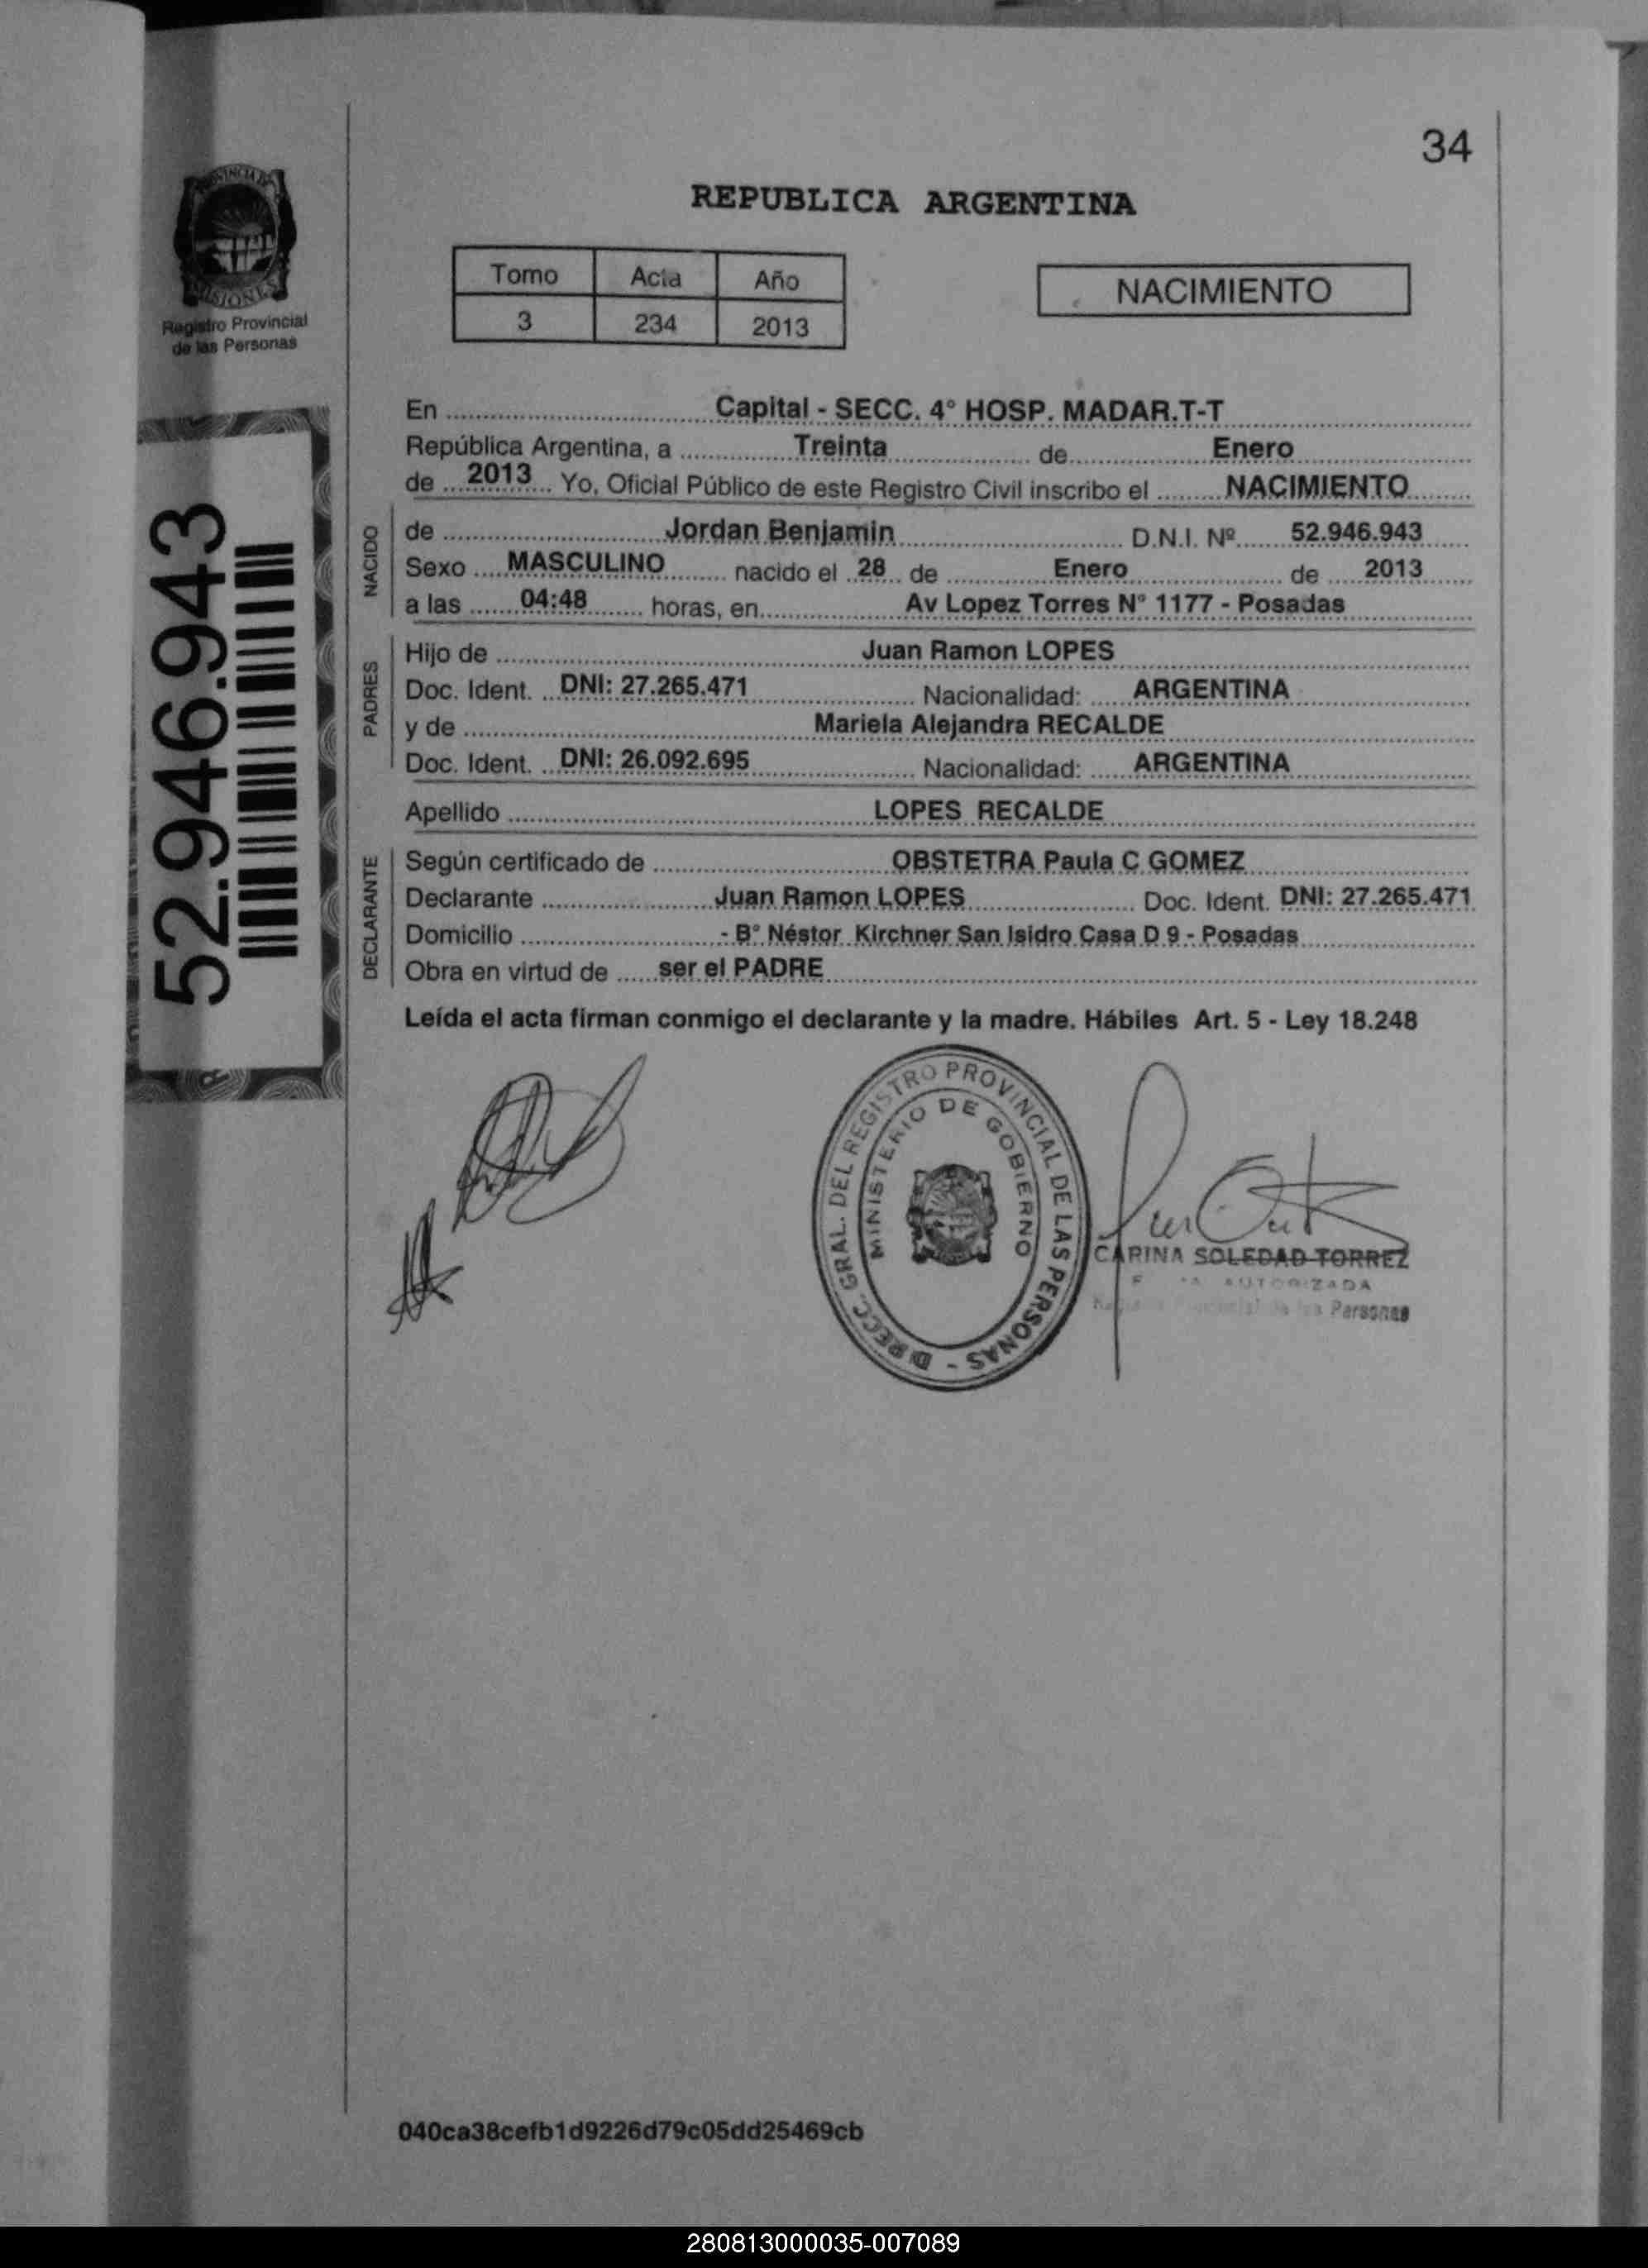 34
PROVINCIA DE
MISIONES
Registro Provincial
de las Personas
REPUBLICA ARGENTINA
Tomo Acta Año
3 234 2013
NACIMIENTO
52.946.943
En Capital - SECC. 4° HOSP. MADAR.T-T
República Argentina, a Treinta de Enero
de 2013 Yo, Oficial Público de este Registro Civil inscribo el NACIMIENTO
NACIDO
de Jordan Benjamin D.N.I. Nº 52.946.943
Sexo MASCULINO nacido el 28 de Enero de 2013
a las 04:48 horas, en Av Lopez Torres N° 1177 - Posadas
PADRES
Hijo de Juan Ramon LOPES
Doc. Ident. DNI: 27.265.471 Nacionalidad: ARGENTINA
y de Mariela Alejandra RECALDE
Doc. Ident. DNI: 26.092.695 Nacionalidad: ARGENTINA
Apellido LOPES RECALDE
DECLARANTE
Según certificado de OBSTETRA Paula C GOMEZ
Declarante Juan Ramon LOPES Doc. Ident. DNI: 27.265.471
Domicilio - B° Néstor Kirchner San Isidro Casa D 9 - Posadas
Obra en virtud de ser el PADRE
Leída el acta firman conmigo el declarante y la madre. Hábiles Art. 5 - Ley 18.248
DIRECC. GRAL. DEL REGISTRO PROVINCIAL DE LAS PERSONAS -
MINISTERIO DE GOBIERNO
CARINA SOLEDAD TORREZ
AUTORIZADA
de las Personas
040ca38cefb1d9226d79c05dd25469cb
280813000035-007089